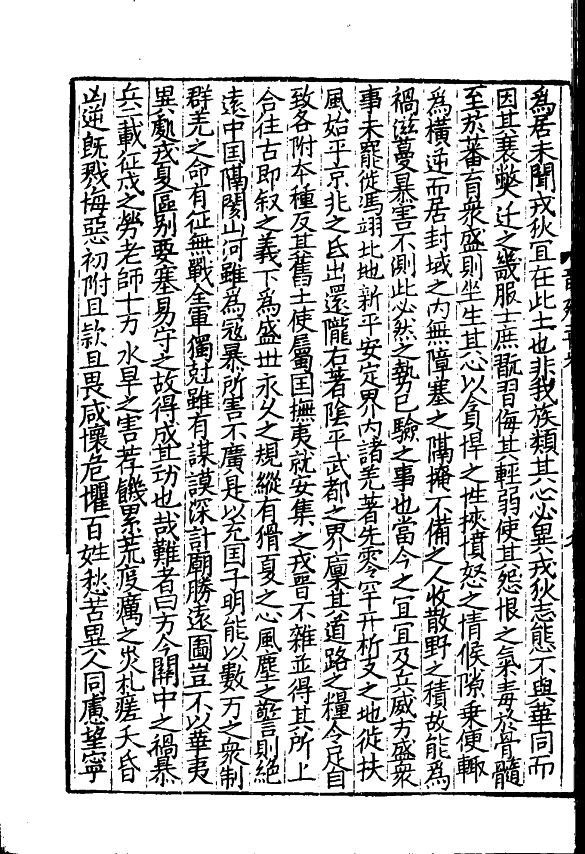 為居未聞戎狄冝在此土也非我族類其心必異戎狄志態不與華同而
因其衰弊迁之畿服士庶翫習侮其輕弱使其怨恨之氣毒於骨髓
至於蕃育衆盛則坐生其心以貪悍之性挾憤怒之情候隙乗便輙
為横逆而居封域之内無障塞之隔掩不備之人收散野之積故能為
禍滋蔓暴害不測此必然之勢已驗之事也當今之冝冝及兵威方盛衆
事未罷徙馮翊北地新平安定界内諸羌著先零罕幵析支之地徙扶
風始平京兆之氐出還隴右著隂平武都之界廪其道路之糧令足自
致各附本種反其舊土使屬囯撫夷就安集之戎晉不雜並得其所上
合往古即叙之義下為盛丗永久之規縱有猾夏之心風塵之警則絶
逺中囯隔閡山河雖為寇暴所害不廣是以充囯子明能以數万之衆制
群羌之命有征無戰全軍獨尅雖有謀謨深計廟勝逺圖豈不以華夷
異處戎夏區别要塞易守之故得成其功也哉難者曰方今關中之禍暴
兵二載征戍之勞老師十万水旱之害荐饑累荒疫癘之灾札瘥夭昏
凶逆旣戮悔惡初附且款且畏咸懐危懼百姓愁苦異人同慮望寧